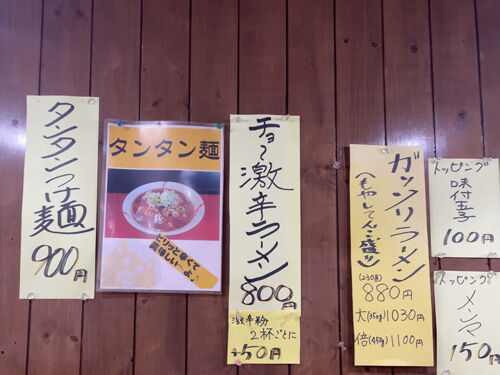 タンタンつけ麺
900円
タンタン麺
ピリッと辛くて
美味しいーよ♪
チョ〜激辛ラーメン
800円
激辛粉
2杯ごとに
50円
ガッツリラーメン
(もやしてんこ盛り)
(230g)
880円
大(350g)1030円
倍(450g)1100円
トッピング
味付玉子
100円
トッピング
メンマ
150円